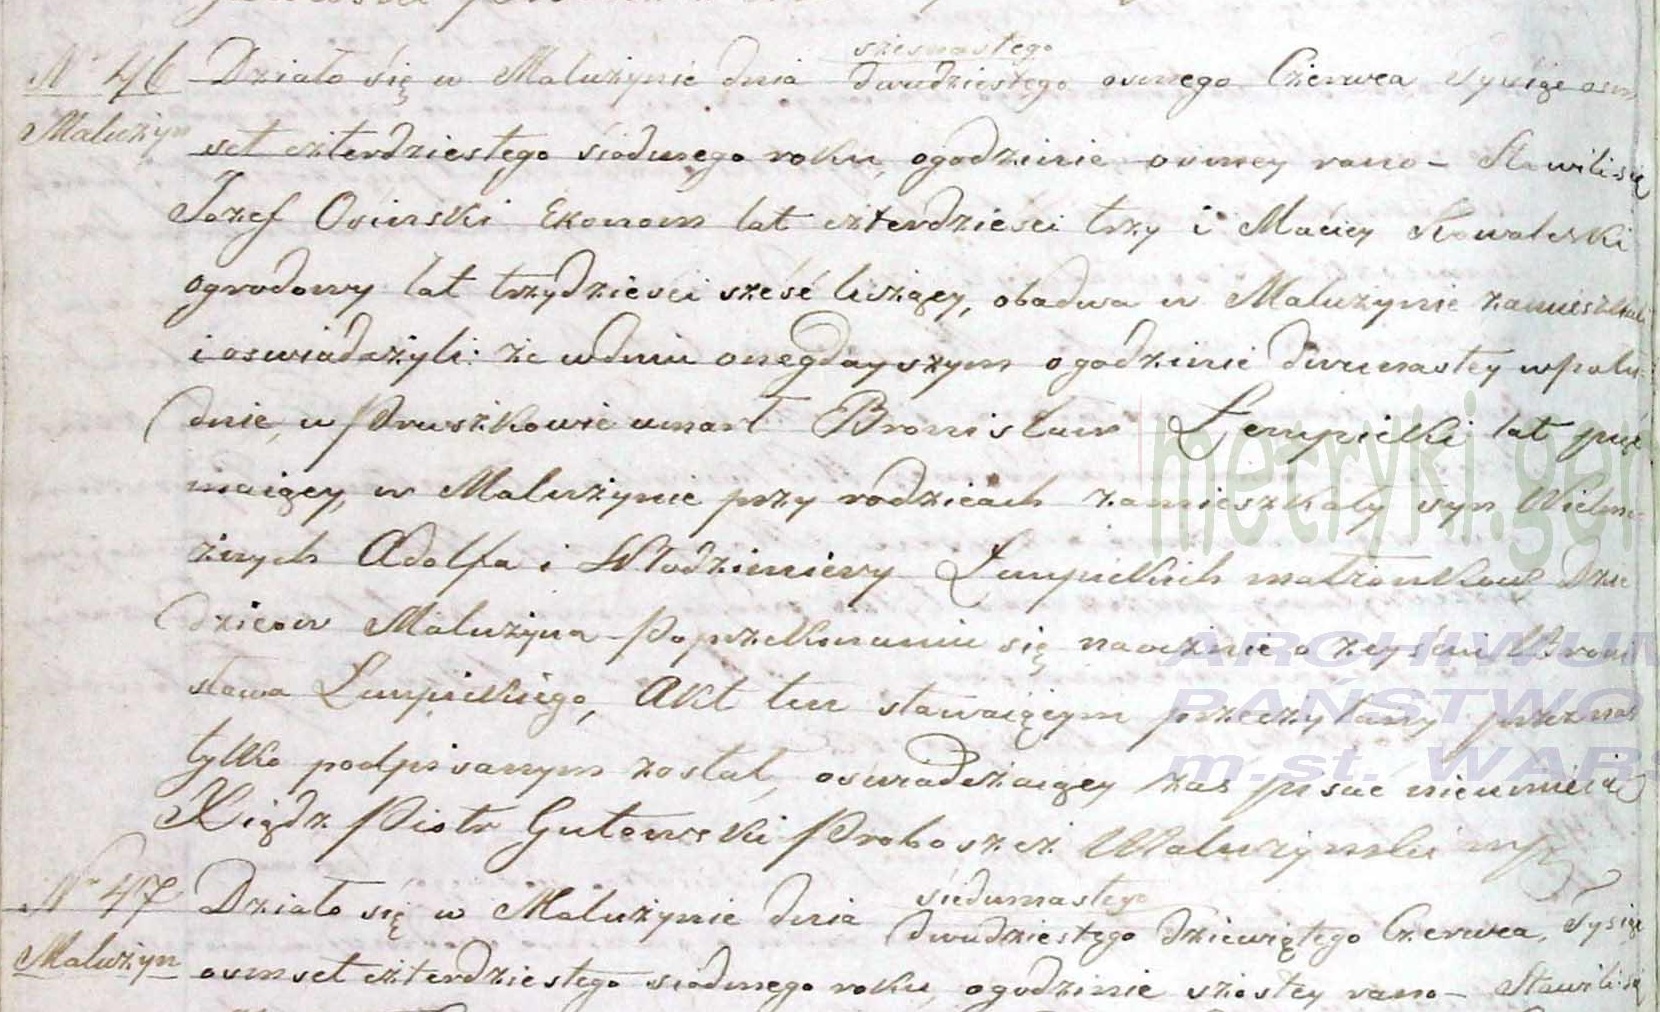 Nr 46 Działo się w Malużynie dnia szesnastego dwudziestego osmego Czerwca Tysiąc osm
Malużyn set czterdziestego siodmego roku, ogodzinie osmey rano – Stawili się
Jozef Osinski Ekonom lat czterdziesci trzy i Maciey Kowaleski
ogrodowy lat trzydziesci sześć liczący, obadwa w Malużynie zamieszkali
i oswiadczyli: że wdniu onegdayszym ogodzinie dwunastey wpołu-
dnie, w Pruszkowie umarł Bronisław Lempicki lat pięć
maiący, w Malużynie przy rodzicach zamieszkały syn Wielmo-
żnych Adolfa i Włodzimiery Lempickich małżonkow Dzie
dzicow Malużyna – Poprzekonaniu się naocznie o zeyściu Broni
sława Lempickiego, Akt ten stawaiącym przeczytany przez nas
tylko podpisanym został, oswiadczaiący zaś pisać nieumieią
Xiądz Piotr Gutowski Proboszcz Malużynski mp
Nr 47 Działo się w Malużynie dnia siedmnastego dwudziestego dziewiątego Czerwca, Tysiąc
Malużyn osmset czterdziestego siodmego roku, ogodzinie szostey rano – Stawili się
metryki.gen
ARCHIWUM
PAŃSTWO
m.st. WARS